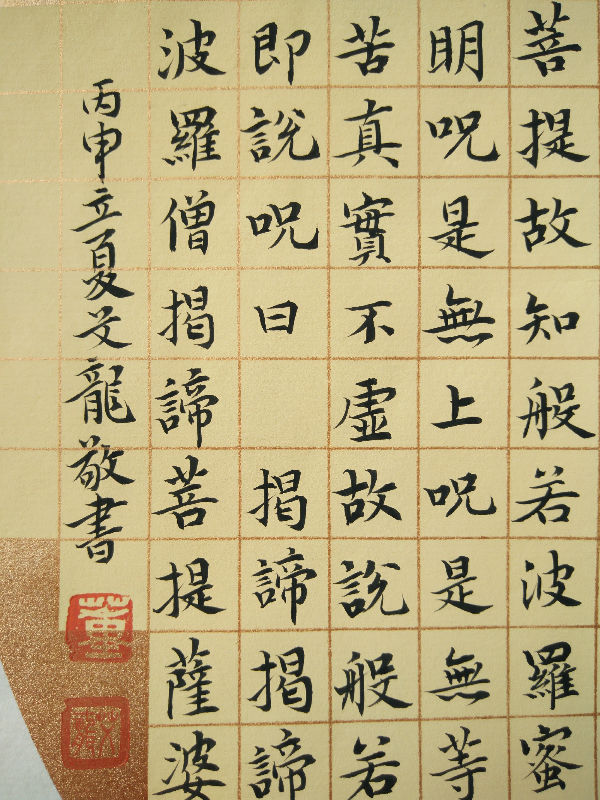 菩提故知般若波羅蜜
明呪是無上呪是無等
苦真實不虛故說般若
即說呪曰 揭諦揭諦
波羅僧揭諦菩提薩婆
丙申立夏文龍敬書
董